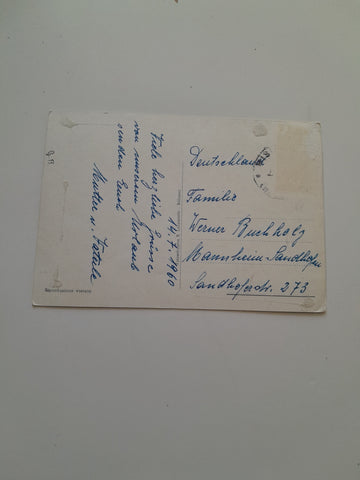 14.7.1960
Viele herzliche Grüsse
von unserem Urlaub
senden Euch
Mutter u. Vatile
Deutschland
Familie
Werner Buchholz
Mannheim-Sandhofen
Sandhoferstr. 273